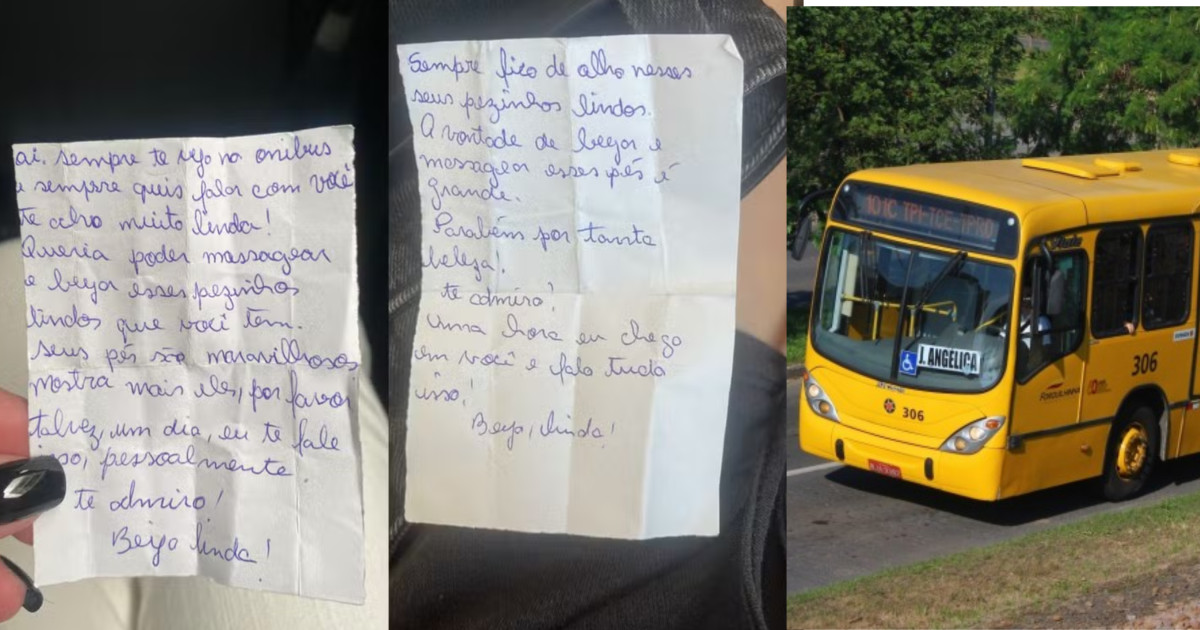 ai. sempre te vejo no onibus
e sempre quis falar com você
te acho muito linda!
Queria poder massagear
e beijar esses pezinhos
lindos que você tem.
seus pés são maravilhosos
mostra mais eles, por favor
talvez, um dia, eu te fale
isso, pessoalmente.
te admiro!
Beijo linda!
Sempre fico de olho nesses
seus pezinhos lindos.
A vontade de beijar e
massagear esses pés é
grande.
Parabéns por tanta
beleza!
te admiro!
Uma hora eu chego
em você e falo tudo
isso!
Beijo, linda!
101C TPI-TCE-TPRO
J. ANGELICA
306
306
FORQUILHINHA